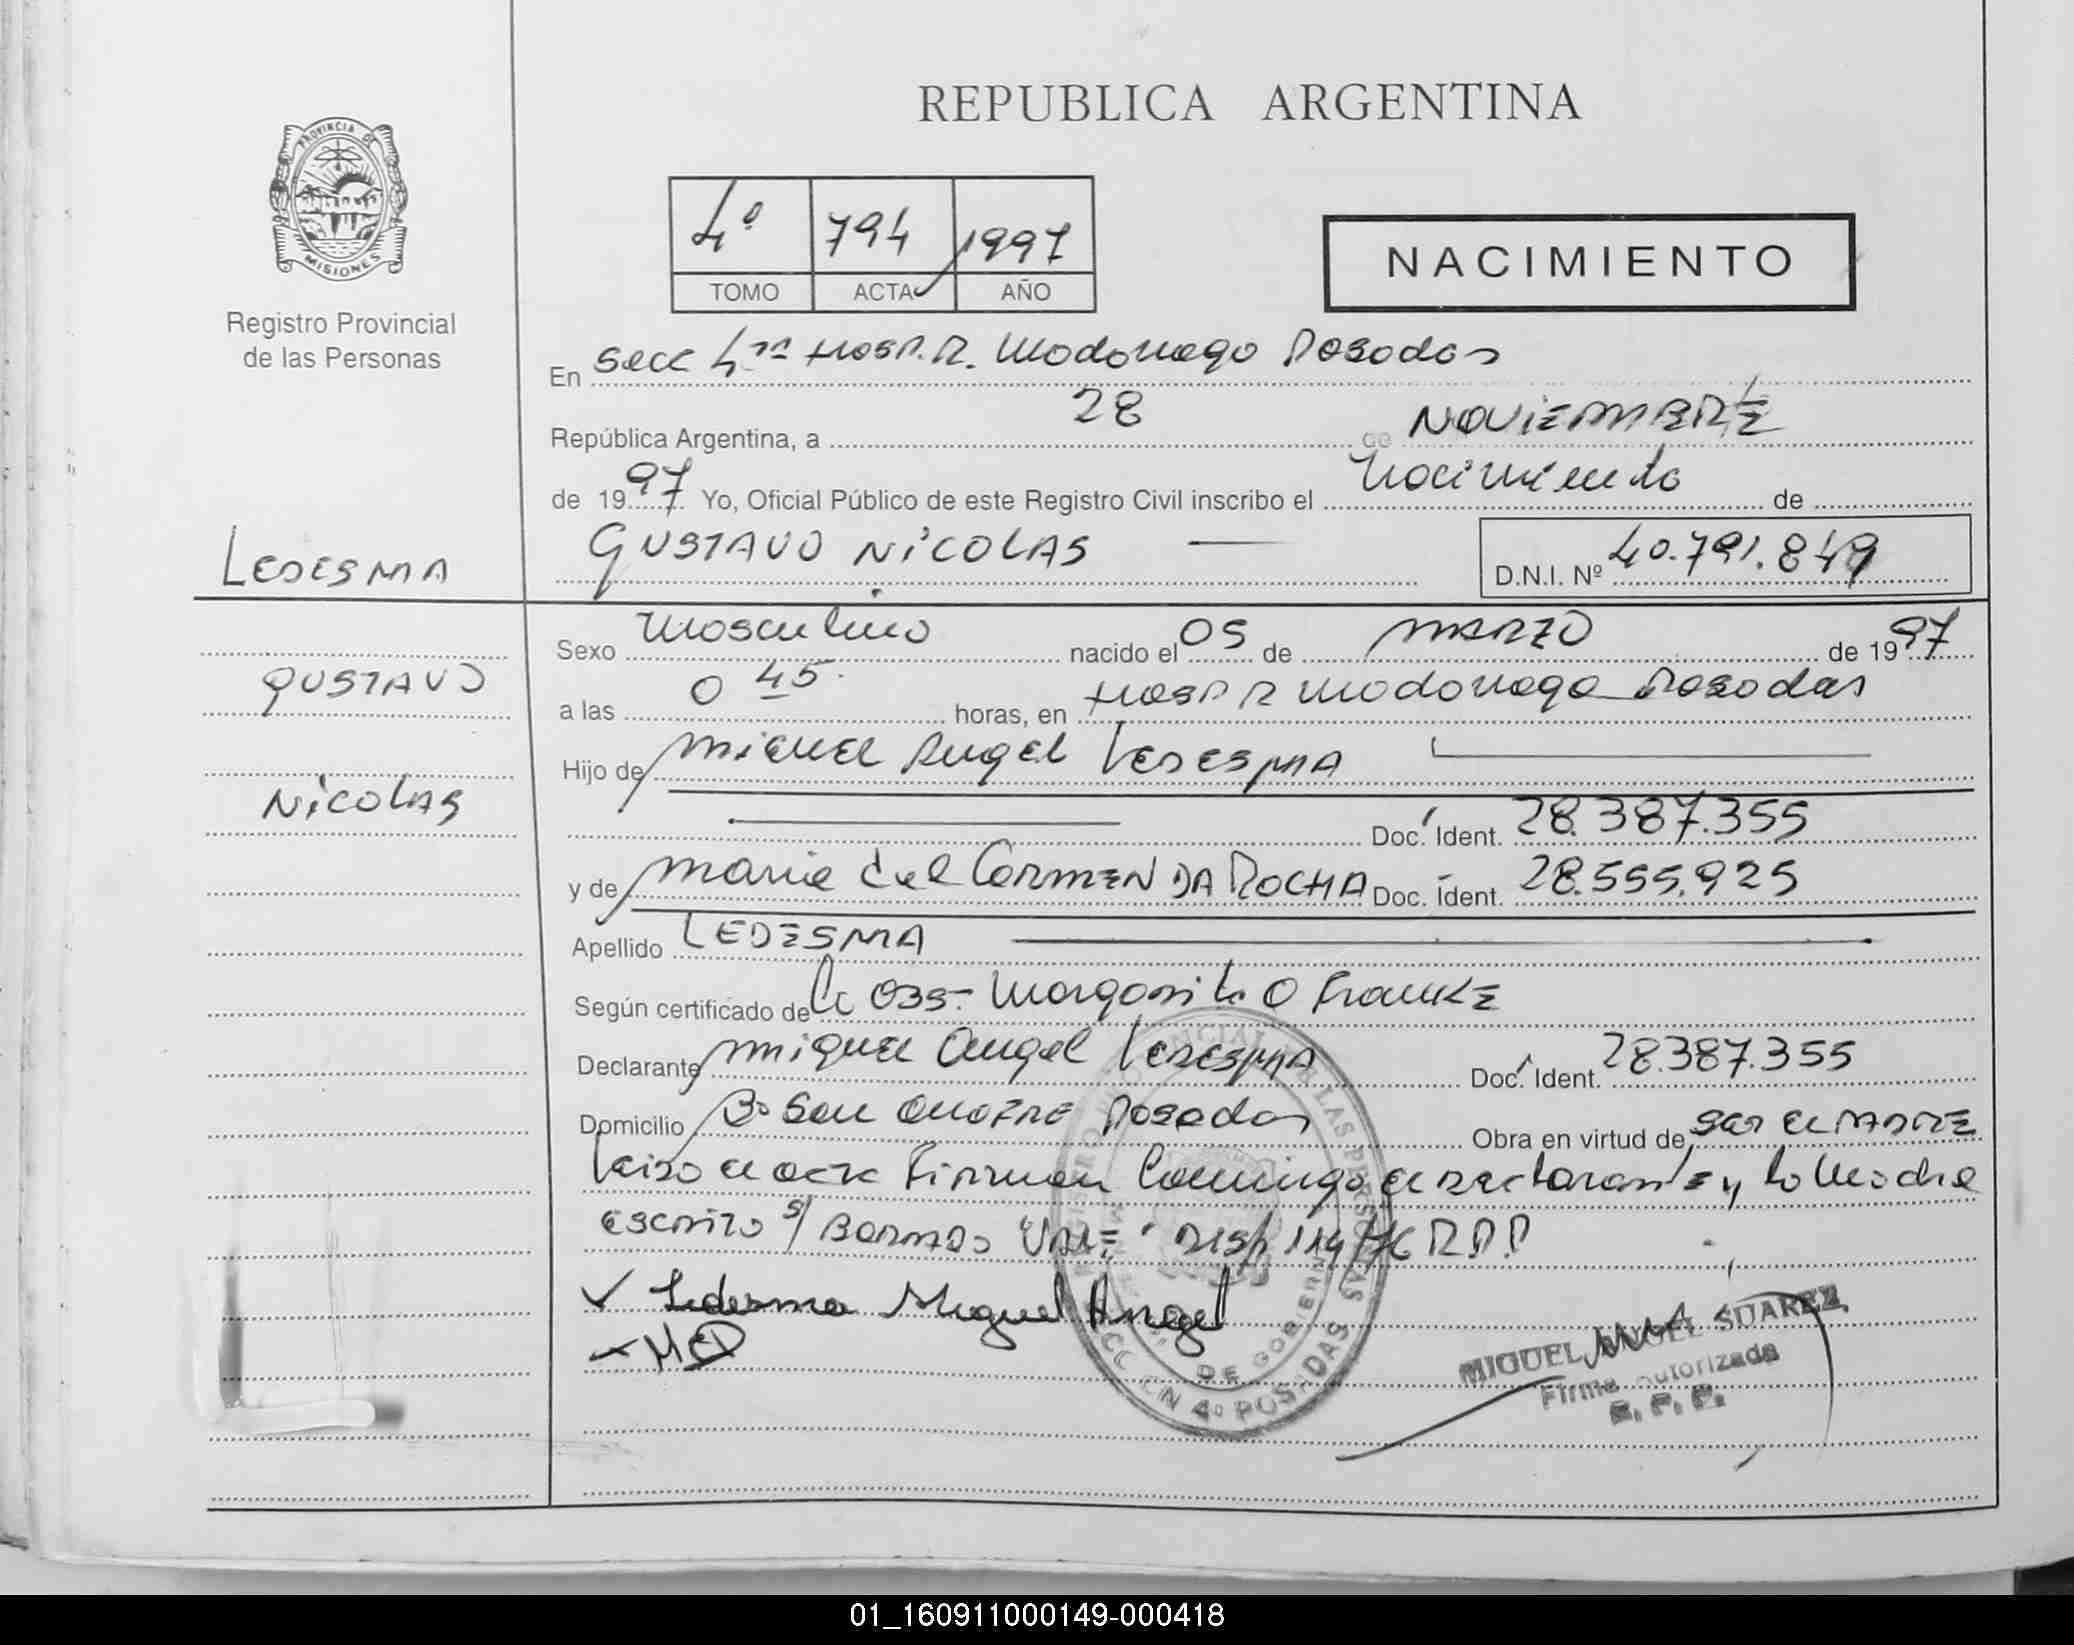 REPUBLICA ARGENTINA
PROVINCIA DE
MISIONES
Registro Provincial
de las Personas
4º 794 1997
TOMO ACTA AÑO
NACIMIENTO
En Secc 4ta Hosp. R. Madariaga Posadas
República Argentina, a 28 de NOVIEMBRE
de 1997 Yo, Oficial Público de este Registro Civil inscribo el Nacimiento de
LEDESMA
GUSTAVO NICOLAS
D.N.I. Nº 40.791.849
GUSTAVO
NICOLAS
Sexo Masculino nacido el 05 de MARZO de 1997
a las 0 45 horas, en Hosp R Madariaga Posadas
Hijo de MIGUEL Angel LEDESMA
Doc. Ident. 28.387.355
y de Maria del CARMEN DA ROCHA Doc. Ident. 28.555.925
Apellido LEDESMA
Según certificado de la Obs. Margarita O
Declarante MIGUEL Angel LEDESMA Doc. Ident. 28.387.355
Domicilio Bº San ONOFRE Posadas Obra en virtud de ser el PADRE
Leido el acta Firman Conmigo el declarante y la Madre
escrito s/ Borrado VALE DISP 114/76 R.P.P
Ledesma Miguel Angel
MCD
REGISTRO PROVINCIAL DE LAS PERSONAS
DE GOBIERNO
SECCION 4º POSADAS
MIGUEL ANGEL SUAREZ
Firma Autorizada
R. P. P.
01_160911000149-000418